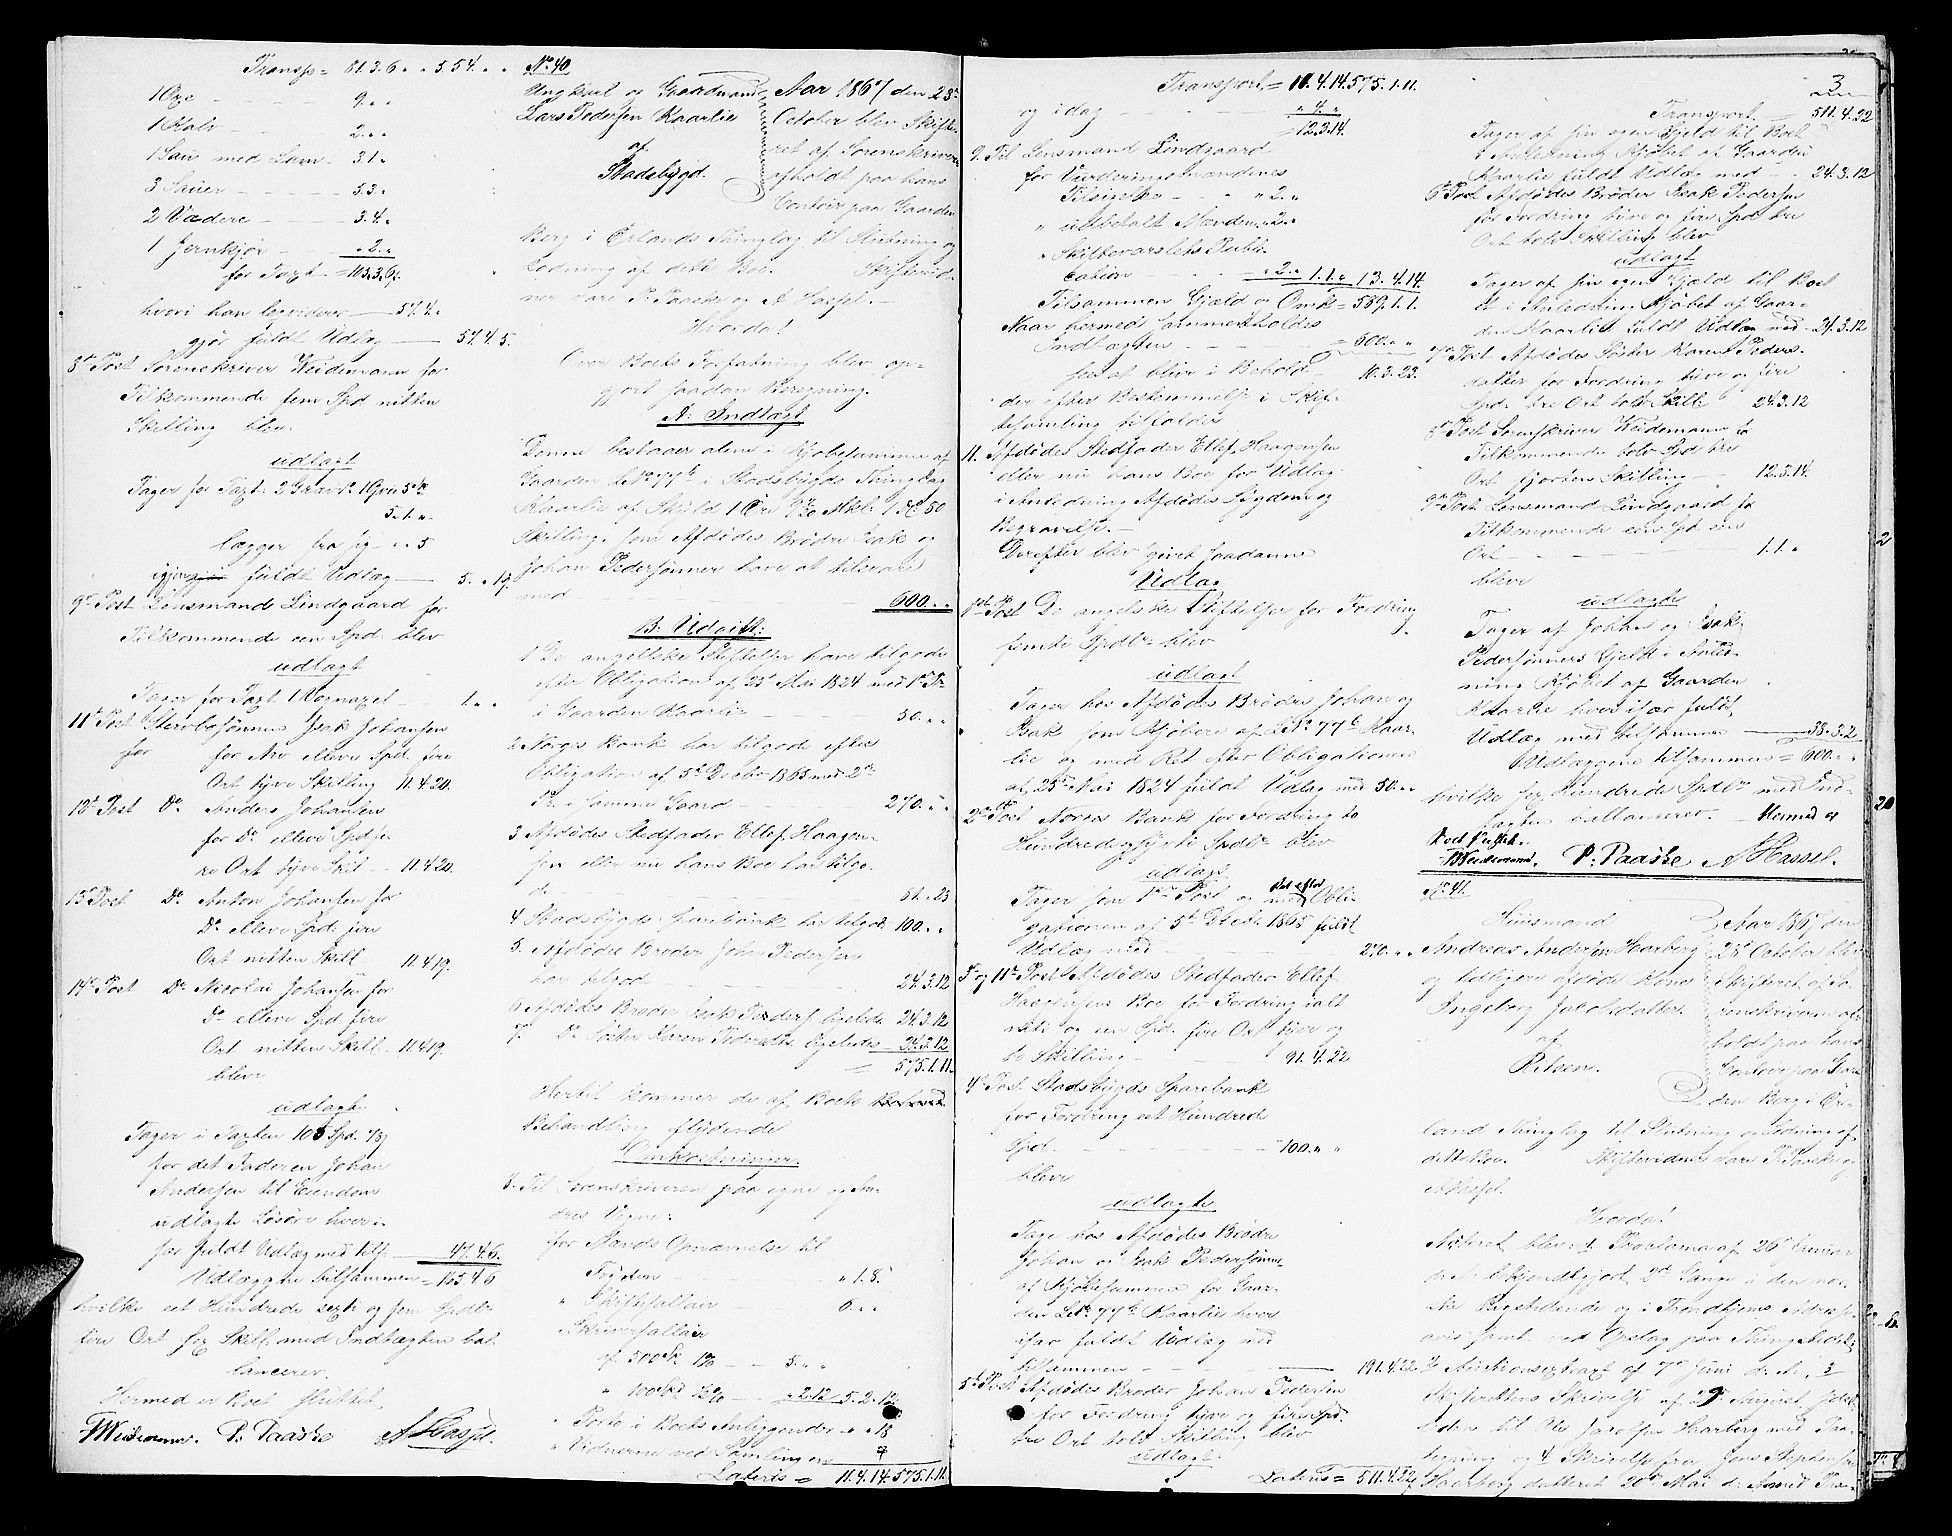 Transp = 81.3.6. . 5.54. .
1 Oxe - - - 9. . .
1 Kalv - - - 2. . .
1 Sau med Lam - 3.1.
3 Sauer - - - 5.3.
2 Vædere - - - 3.4.
1 Jernkjør - - - " 2. .
for Taxt = 105.3.6.
hvori han legviderer - 57.4.
gjør fuldt Udlæg - 57.4.5.
8de Post Sorenskriver Weidemann for
Tilkommende fem Spd nitten
Skilling blev
udlagt
Tager for Taxt: 2
5.1. "
lægger fra sig " . 5
fuldt Udlæg - 5. " 19.
9de Post Lensmand Lindgaard for
Tilkommende een Spd. blev
udlagt
Tager for Taxt 1 - 1. . .
11te Post Sterbosønnen Isak Johansen
for for Arv elleve Spd. fire
Ort tyve Skilling 11.4.20.
12te Post Do Anders Johansen
for Do elleve Spd fi-
re Ort tyve Skil - 11.4.20.
13de Post Do Anton Johansen for
Do elleve Spd. fire
Ort nitten Skill - 11.4.19.
14de Post Do Nicolai Johansen for
Do elleve Spd fire
Ort nitten Skill - 11.4.19.
bleve
udlagte
Tager i Taxten 105 Spd.
for det Faderen Johan
Andersen til Eiendom
udlagte Løsøre hver i-
sær fuldt Udlæg med tils. - 47.4.6.
Udlæggene tilsammen = 165.4.6
hvilke eet Hundrede sexti og fem Spdlr
fire Ort sex Skill. med Indtægten bal-
lancerer.
Hermed er Boet sluttet.
Weidemann. P. Paaske A Hassel.
No 40
Ungkarl og Gaardmand
Lars Pedersen Kaarlie
af
Stadsbygd.
Aar 1867 den 23de
October blev Skifte-
ret af Sorenskriveren
afholdt paa hans
Contoir paa Gaarden
Berg i Ørlands Thinglag til Slutning og
Lodning af dette Boe. Skiftevid-
ner vare P. Paaske og A Hassel. -
Hvorda!
Over Boets Forfatning blev op-
gjort saadan Beregning.
A: Indtægt
Denne bestaaer alene i Kjøbesummen af
Gaarden LNo 77b i Stadsbygds Thinglag
Kaarlie af Skyld 1 Øre 9 Mkl. 50
Skilling, som Afdødes Brødre Isak og
Johan Pedersønner have at tilsvare
med - - - 600. . .
B. Udgift:
1 De angellske Stiftelser have tilgode
efter Obligation af 25de Mai 1824 med 1ste Pr.
i Gaarden Kaarlie - 50. . .
2 Norges Bank har tilgode efter
Obligation af 5te Decbr 1865 med 2den
Pr. i samme Gaard - 270. . .
3 Afdødes Stedfader Ellef Haagen-
sen eller nu hans Boe har tilgo-
de - - - 81. . 23
4 Stadsbygds Sparebank har tilgode 100. . .
5. Afdødes Broder Johan Pedersen
har tilgode - - - 24.3.12
6 Afdødes Broder Isak Peders. ligeledes 24.3.12
7. Do Søster Karen Pedersdtr. ligeledes 24.3.12
= 575.1.11.
Hertil kommer de af Boets
Behandling flydende
Omkostninger.
8. Til Sorenskriveren paa egne og An-
dres Vegne:
for Mands Opnævnelse til
- " 1.8.
" Skiftesallair 6. . .
" Skriversallair
af 500 Spd 1% - - 5. . .
" 100 Spd ½% - - " 2.12 5.2.12
" Porto i Boets Anliggender . . 18
" Vidnerne ved Samlingerne
Lateris = 11.4.14. 575.1.11.
3
Transport = 11.4.14. 575.1.11.
og idag - - - " 4. "
= 12.3.14.
9. Til Lensmand Lindgaard
for Vurderingsmandenes
Tilsigelse - - - " 2. "
" udbetalt Mændene " 2. "
" Skiftevarslets Publi-
cation - - - " 2. " 1.1. " 13.4.14.
Tilsammen Gjæld og Omk = 589.1.1.
Naar hermed sammenholdes
Indtægten - - - = 600. " "
sees at blive i Behold - 10.3.23.
der efter Bestemmelse i Skif-
tesamling tilfalder
11. Afdødes Stedfader Ellef Haagensen
eller nu hans Boe for Udlæg
i Anledning Afdødes Sygdom og
Begravelse. -
Derefter blev givet saadanne
Udlæg
1ste Post De angelske Stiftelser for Fordring
femti Spdlr blev
udlagt
Tager hos Afdødes Brødre Johan og
Isak som Kjøbere af LNo 77b Kaar-
lie og med Ret efter Obligationen
af 25de Mai 1824 fuldt Udlæg med 50. . .
2den Post Norges Bank for Fordring to
Hundrede og sytti Spdlr blev
udlagt
Tager som 1ste Post og med Ret efter Obli-
gationen af 5te Decbr. 1865 fuldt
Udlæg med - - - 270. . .
3de og 11te Post Afdødes Stedfader Ellef
Haagensens Boe for Fordring ialt
nitti og een Spd. fire Ort tyve og
to Skilling - - - 91.4.22
4de Post Stadsbygds Sparebank
for Fordring eet Hundrede
Spd. - - - 100. " "
bleve
udlagte
Tage hos Afdødes Brødre
Johan og Isak Pedersønner
af Kjøbesummen for Gaar-
den LNo 77b Kaarlie hver
især fuldt Udlæg med
tilsammen - - - 191.4.22
5te Post Afdødes Broder Johan Pedersen
for Fordring tyve og fire Spd.
tre Ort tolv Skilling blev
udlagt.
Lateris = 511.4.22
Transport = 511.4.22
Tager af sin egen Gjeld til Boet
i Anledning Kjøbet af Gaarden
Kaarlie fuldt Udlæg med - 24.3.12
6te Post Afdødes Broder Isak Pedersen
for Fordring tyve og fire Spd tre
Ort tolv Skilling blev
udlagt
Tager af sin egen Gjæld til Boet
i Anledning Kjøbet af Gaar-
den Kaarlie fuldt Udlæg med - 24.3.12
7de Post Afdødes Søster Karen Peders-
datter for Fordring tyve og fire
Spd. tre Ort tolv Skill. 24.3.12
8de Post Sorenskriver Weidemann for
Tilkommende tolv Spd tre
Ort fjorten Skilling - 12.3.14.
9de Post Lensmand Lindgaard for
Tilkommende een Spd een
Ort - - - 1.1. "
bleve
udlagte
Tager af Johan og Isak
Pedersønners Gjeld i Anled-
ning Kjøbet af Gaarden
Kaarlie hver især fuldt
Udlæg med tilsammen - 38.3.2
Udlæggene tilsammen = 600. " "
hvilke sex Hundrede Spdlr med Ind-
tægten ballancerer. - Hermed er
Boet sluttet. -
Weidemann. P. Paaske A Hassel.
No 41.
Huusmand
Andreas Andersen Harberg
og tidligere afdøde Kone
Ingeborg Jacobsdatter
af
Aar 1867 den
23de October blev
Skifteret af So-
renskriveren af-
holdt paa hans
Contoir paa Gaar-
den Berg i Ør-
land Thinglag til Slutning og Lodning af
dette Boe. Skiftevidner vare P. Paaske og
A Hassel.
Hvorda!
Noteret blev: 1. Proclama af 26de Januar
d. A. bekjendtgjort 2de Gange i den nor-
ske Rigstidende og i Trondhjems Adresse-
avis samt ved Opslag paa Thingstedet,
2. Auctionsextract af 7de Juni d. A., 3
Skifterettens Skrivelse af 29 August
til Ole Jacobsen Harberg med Paa-
tegning og 4 Skrivelse fra Jens Stephensen
Haarberg datteret 20de Mai d. A. med Paa-